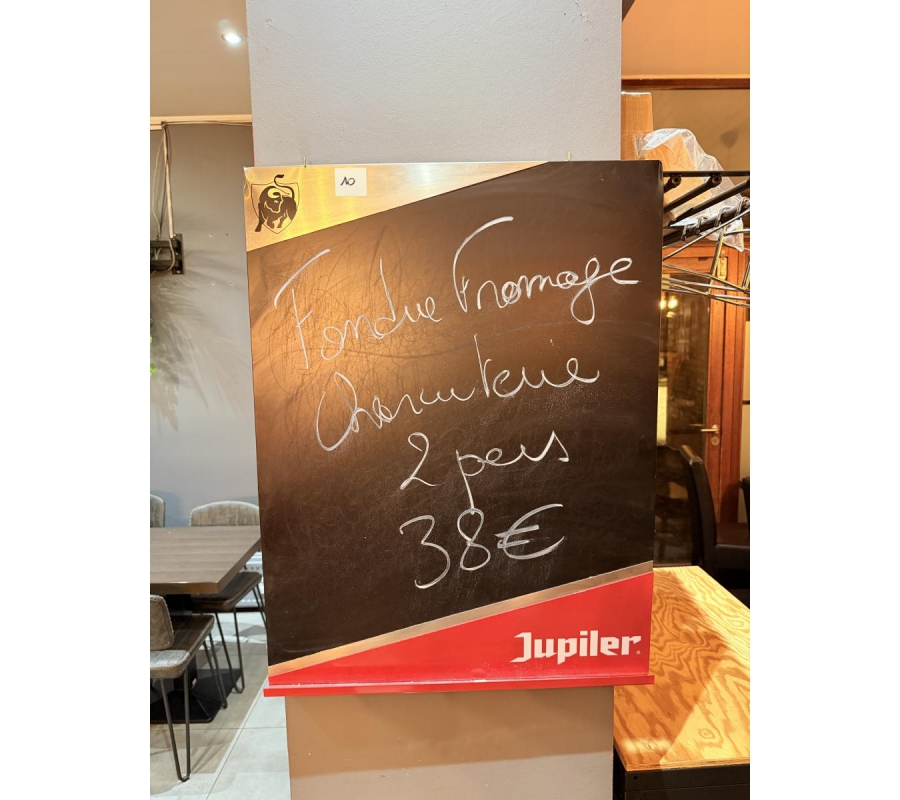 10
Fondue Fromage
Charcuterie
2 pers
38€
Jupiler